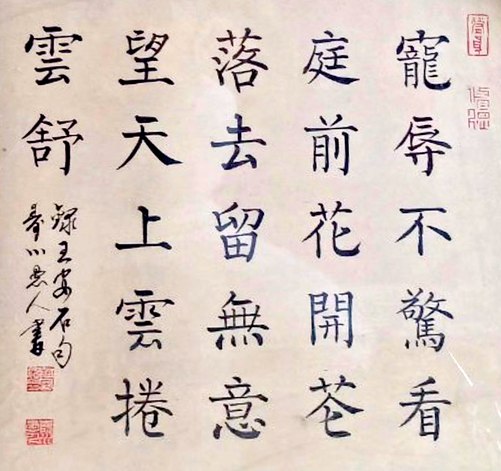 寵辱不驚看
庭前花開芲
落去留無意
望天上雲捲
雲舒
錄王安石句
人書